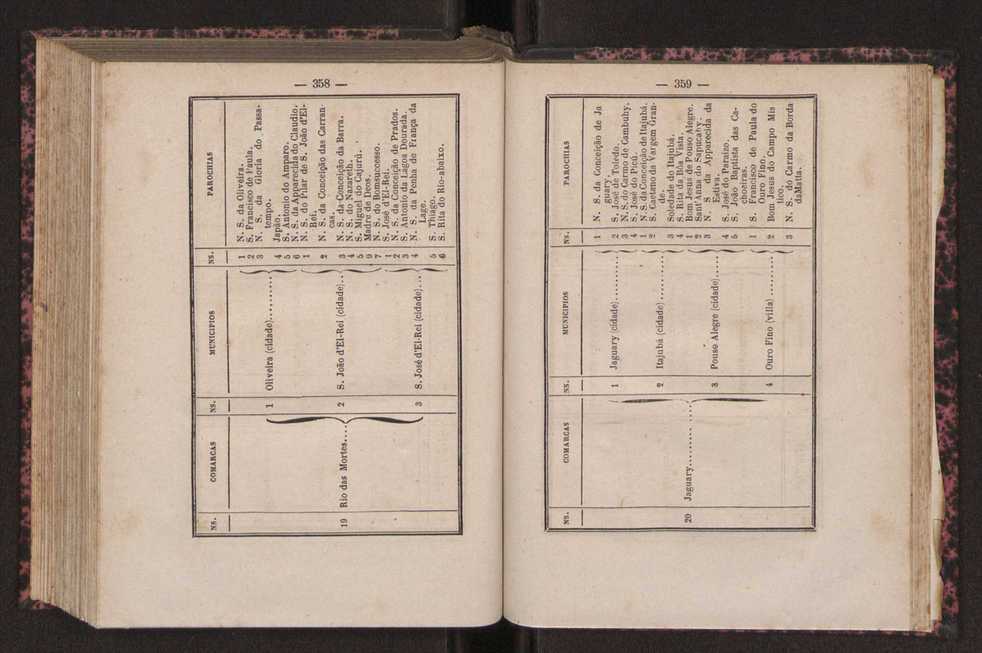 — 358 —
NS. COMARCAS NS. MUNICIPIOS NS. PAROCHIAS
19 Rio das Mortes....
1 Oliveira (cidade)..........
1 N. S. da Oliveira.
2 S. Francisco de Paula.
3 N. S. da Gloria do Passa-
tempo.
Japão.
4 S. Antonio do Amparo.
5 N. S. da Apparecida do Claudio.
6
2 S. João d'El-Rei (cidade)..
1 N. S. do Pilar de S. João d'El-
Rei.
2 N. S. da Conceição das Carran-
cas.
3 N. S. da Conceição da Barra.
4 N. S. do Nazareth.
5 S. Miguel do Cajurú.
9 Madre de Deos.
7 N. S. do Bomsuccesso.
3 S. José d'El-Rei (cidade)...
1 S. José d'El-Rei.
2 N. S. da Conceição de Prados.
3 S. Antonio da Lagoa Dourada.
4 N. S. da Penha de França da
Lage.
5 S. Thiago.
6 S. Rita do Rio-abaixo.
— 359 —
NS. COMARCAS NS. MUNICIPIOS NS. PAROCHIAS
20 Jaguary.........
1 Jaguary (cidade)..........
1 N. S. da Conceição de Ja
guary.
2 S. José de Toledo.
3 N. S. do Carmo de Cambuhy.
4 S. José do Picú.
2 Itajubá (cidade)..........
1 N. S. da Conceição de Itajubá.
2 S. Caetano da Vargem Gran-
de.
3 Soledade do Itajubá.
4 S. Rita da Bôa Vista.
3 Pouso Alegre (cidade).....
1 Bom Jesus de Pouso Alegre.
2 Sant'Anna do Sapucahy.
3 N. S da Apparecida da
Estiva.
4 S. José do Paraizo.
5 S. João Baptista das Ca-
choeiras.
4 Ouro Fino (villa)........
1 S. Francisco de Paula do
Ouro Fino.
2 Bom Jesus do Campo Mis
tico.
3 N. S. do Carmo da Borda
daMatta.